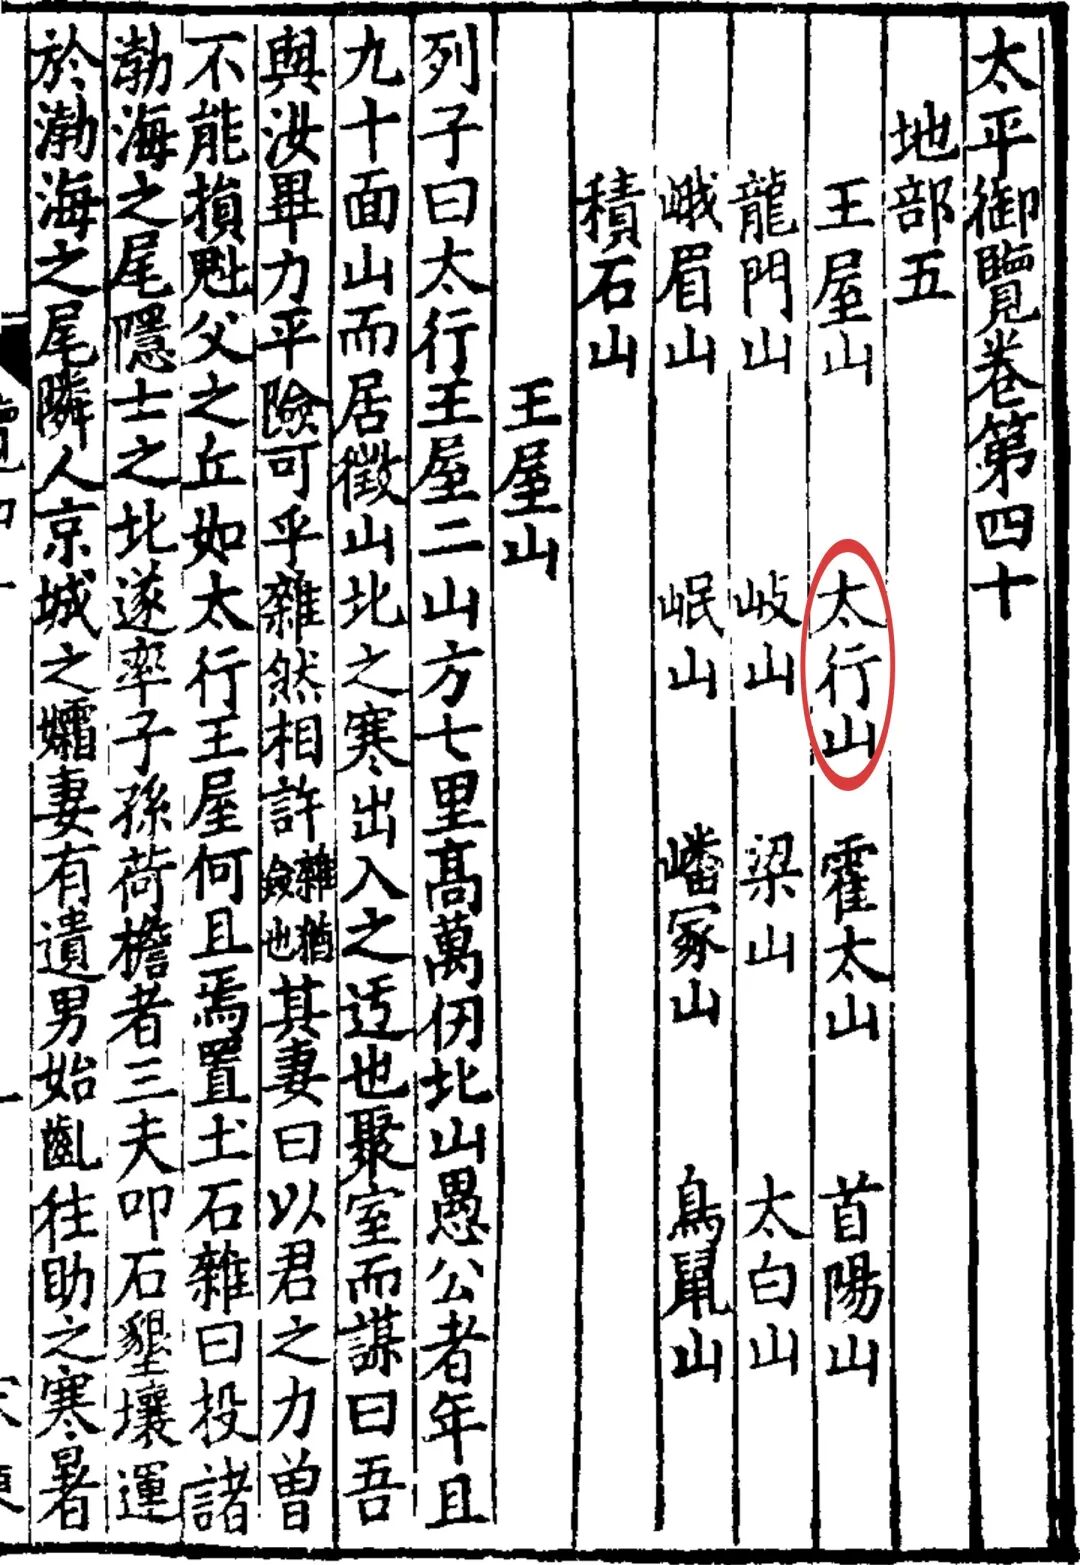 太平御覽卷第四十
地部五
王屋山 太行山 霍太山 首陽山
龍門山 岐山 梁山 太白山
峨眉山 岷山 嶓冢山 鳥鼠山
積石山
王屋山
列子曰太行王屋二山方七里高萬仞北山愚公者年且
九十面山而居徵山北之寒出入之迃也聚室而謀曰吾
與汝畢力平險可乎雜然相許雜猶僉也其妻曰以君之力曾
不能損魁父之丘如太行王屋何且焉置土石雜曰投諸
渤海之尾隱士之北遂率子孫荷檐者三夫叩石墾壤運
於渤海之尾隣人京城之孀妻有遺男始齔往助之寒暑